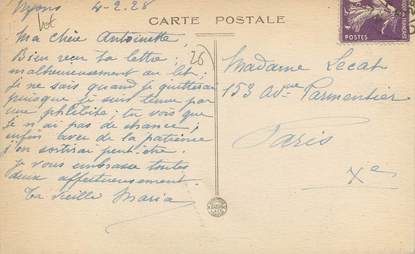 Nyons 4-2-28
CARTE POSTALE
Ma chère Antoinette
Bien reçu ta lettre;
malheureusement au lit;
je ne sais quand je quitterai
puisque je suis tenue par
une phlébite; tu vois que
je n'ai pas de chance;
enfin avec de la patience
j'en sortirai peut-être.
Je vous embrasse toutes
deux affectueusement.
Ta vieille Maria
26
Madame Lecat
153 Avue Parmentier
Paris
Xe
POSTES